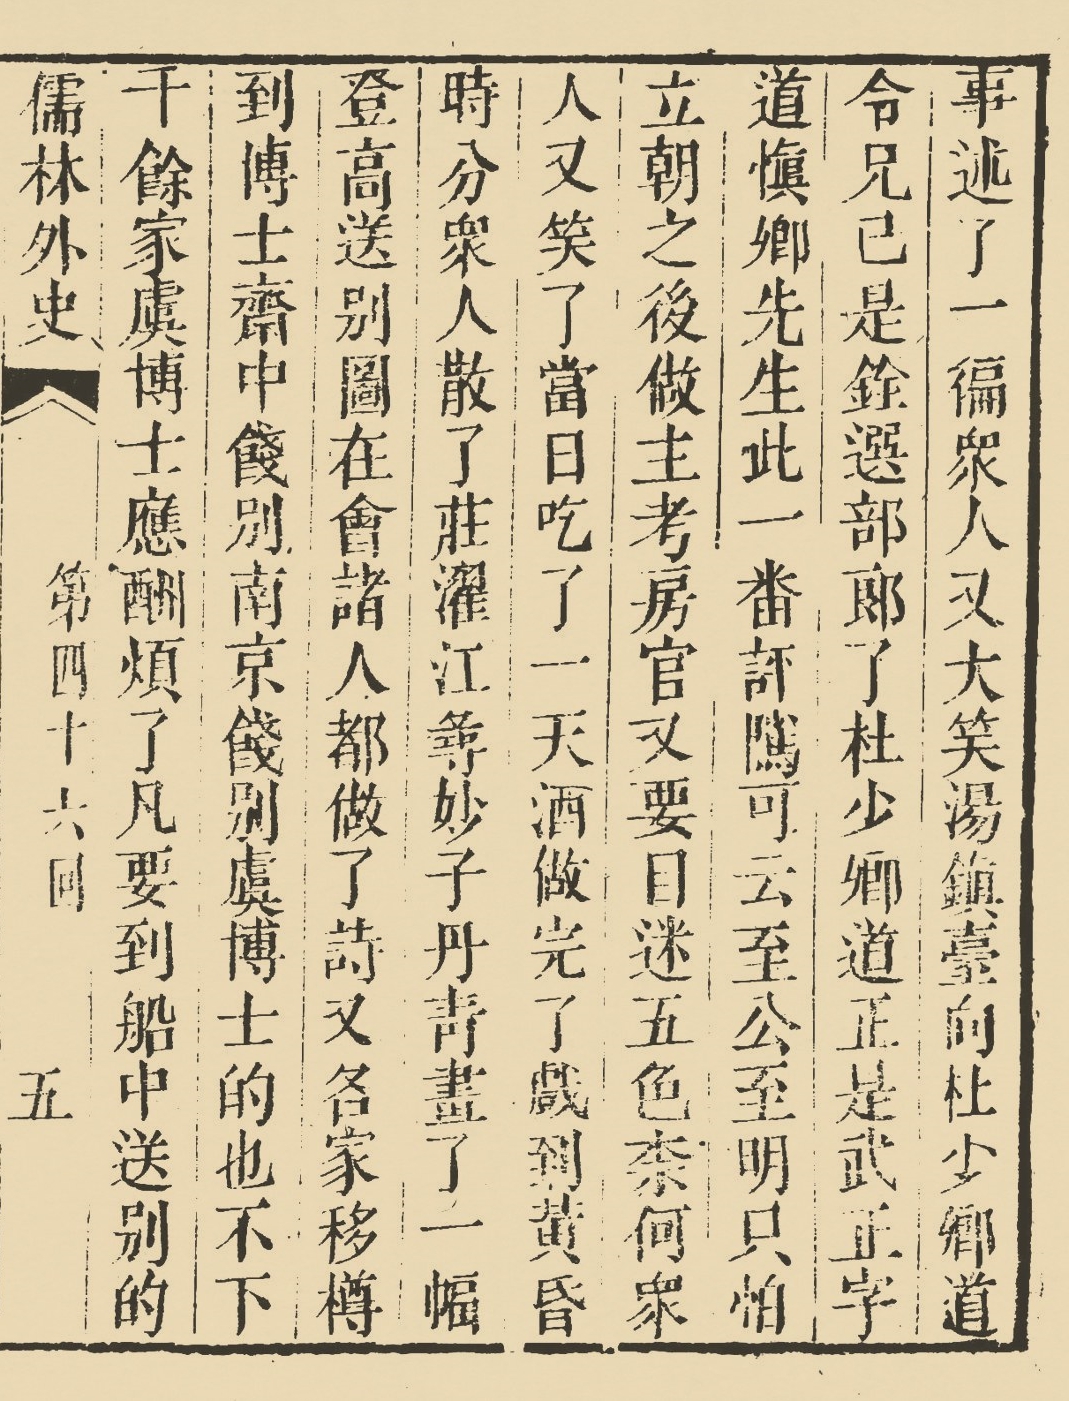 事述了一徧衆人又大笑湯鎮臺向杜少卿道
令兄已是銓選部郎了杜少卿道正是武正字
道愼卿先生此一番評騭可云至公至明只怕
立朝之後做主考房官又要目迷五色柰何衆
人又笑了當日吃了一天酒做完了戲到黃昏
時分衆人散了莊濯江尋妙子丹靑畫了一幅
登高送別圖在會諸人都做了詩又各家移樽
到博士齋中餞別南京餞別虞博士的也不下
千餘家虞博士應酬煩了凡要到船中送別的
儒林外史 第四十六回 五